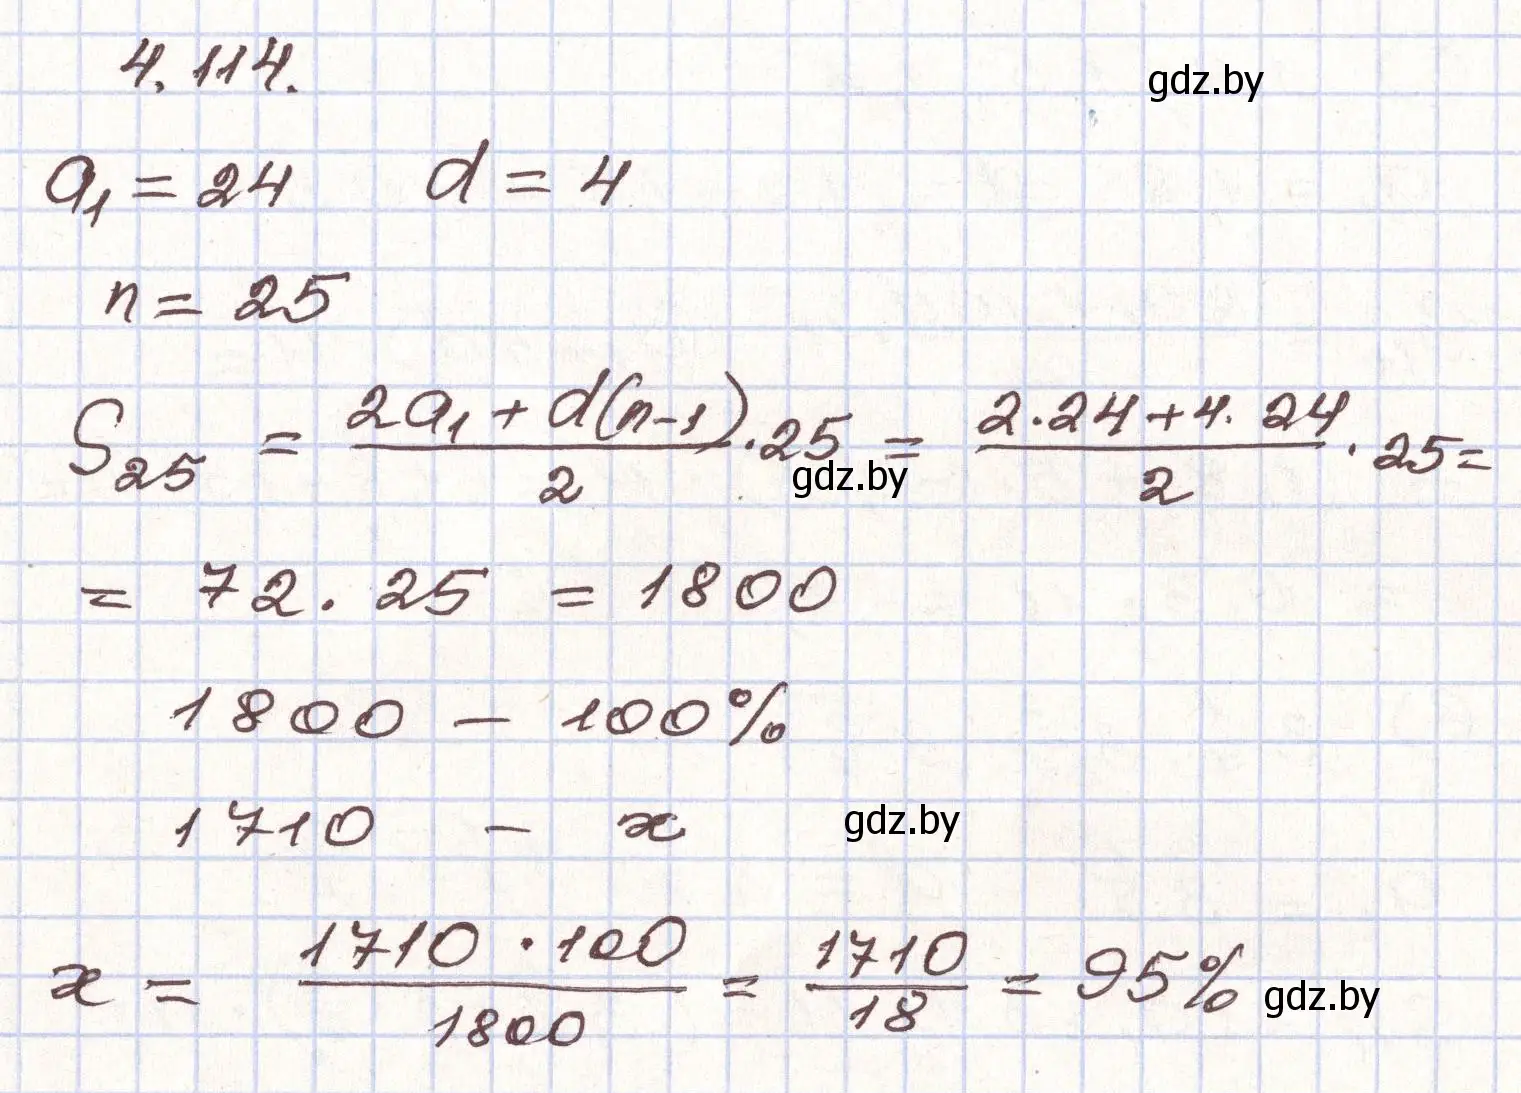 4.114.
gdz.by
a₁ = 24 d = 4
n = 25
S₂₅ = (2a₁ + d(n-1))/2 · 25 = (2·24+4·24)/2 · 25 =
gdz.by
= 72 · 25 = 1800
1800 – 100%
1710 – x
gdz.by
x = (1710 · 100)/1800 = 1710/18 = 95%
gdz.by